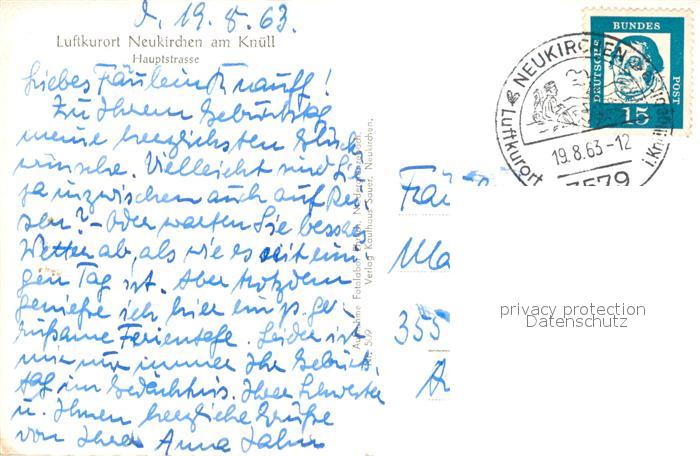 d. 19.8.63.
Luftkurort Neukirchen am Knüll
Hauptstrasse
Liebes Fräulein Knauff!
Zu Ihrem Geburtstag
meine herzlichsten Glück
wünsche. Vielleicht sind Sie
ja inzwischen auch auf Rei-
sen? - Oder warten Sie besseres
Wetter ab, als wie es seit eini-
gen Tag ist. Aber trotzdem
genieße ich hier ein p. ge-
ruhsame Ferientage. Leider ist
mir nur immer Ihr Geburts-
tag im Gedächtnis. Ihrer Schwester
u. Ihnen herzliche Grüße
von Ihrer Anna Jahn
Verlag Kaufhaus Sauer, Neukirchen.
Nr. 509
DEUTSCHE
BUNDES
POST
15
NEUKIRCHEN
Luftkurort
i. Knüll
19.8.63-12
3579
Frä
Ma
355
privacy protection
Datenschutz